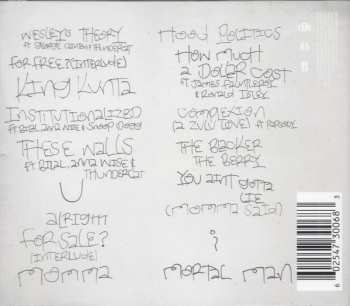 Wesley's Theory
ft George Clinton & Thundercat
For Free? (Interlude)
King Kunta
Institutionalized
ft Bilal, Anna Wise & Snoop Dogg
These Walls
ft Bilal, Anna Wise &
Thundercat
U
Alright
For Sale?
(Interlude)
Momma
Hood Politics
How Much
A Dollar Cost
ft James Fauntleroy
& Ronald Isley
Complexion
(A Zulu Love) ft Rapsody
The Blacker
The Berry
You Aint Gotta
Lie
(Momma Said)
i
Mortal Man
6 02547 30068 3